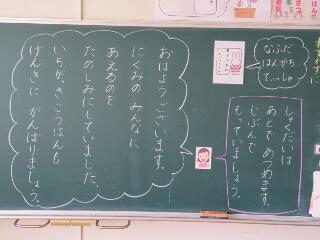 おはようございます。
にくみのみんなに
あえるのを
たのしみにしていました。
いちがっきこうはんも
げんきに がんばりましょう。
なふだ
はんかち
てぃっしゅ
しゅくだいは
あとであつめます。
じぶんで
もっていましょう。